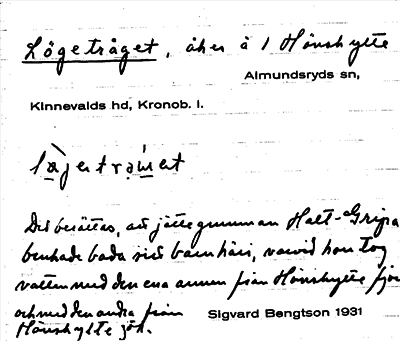 Lögetråget, åker å 1 Hönshylte
Almundsryds sn,
Kinnevalds hd, Kronob. l.
Det berättas, att jättegumman Halt-Gripa
brukade bada sitt barn häri, varvid hon tog
vatten med den ena armen från Hönshylte fjö
och med den andra från
Hönshylte sjö.
Sigvard Bengtson 1931